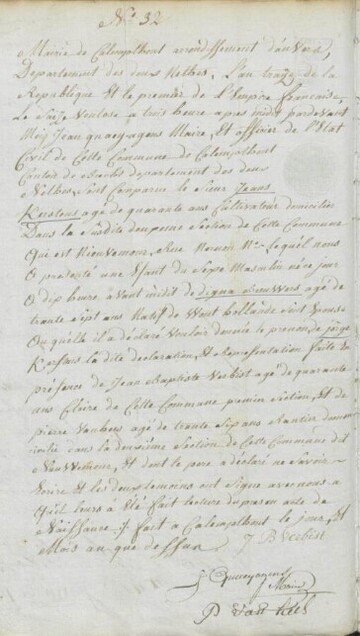 No 32
Mairie de Calempthout arrondissement d'anvers,
Departement des deux Nethes. L'an treize de la
Republique Et le premier de l'Empire francaise,
Le Seize Ventose a trois heure apres midit pardevant
Moy Jean quaeyhagens Maire, Et officier de l'Etat
Civil de Cette Commune de Calempthout
Canton de departement des deux
Nethes, Sont Comparue le Sieur Jeans
Kerstens agé de quarante ans Cultivateur domicilier
Dans la Susdite Section de Cette Commune
Qui est Nieuwmoer, Rue No lequel nous
a presenté une Efant du Sexe Masculin née ce jour
a dix heure avant midit de digna agé de
trente Sept ans Natif de hollande Son Epouse
a quelle il a déclaré Vouloir donner le prenom de
Kerstens la dite declaration, Et Representation faite En
présence de Jean Baptiste Verbist agé de quarante
ans Cloire de Cette Commune premier Section, Et de
pierre agé de trente Six ans Rantier domi
cilie dans la deuxieme Section de Cette Commune dit
Nieuwmoer, Et dont le pere a déclaré ne Savoir
Ecrire Et les deux temoins ont Signe avec nous a
quil leurs a Eté fait lecture du present acte de
Naissance. fait a Calempthout le jour, Et
Mois an que dessus J B Verbist
J Quaeyhagens
Maire
P